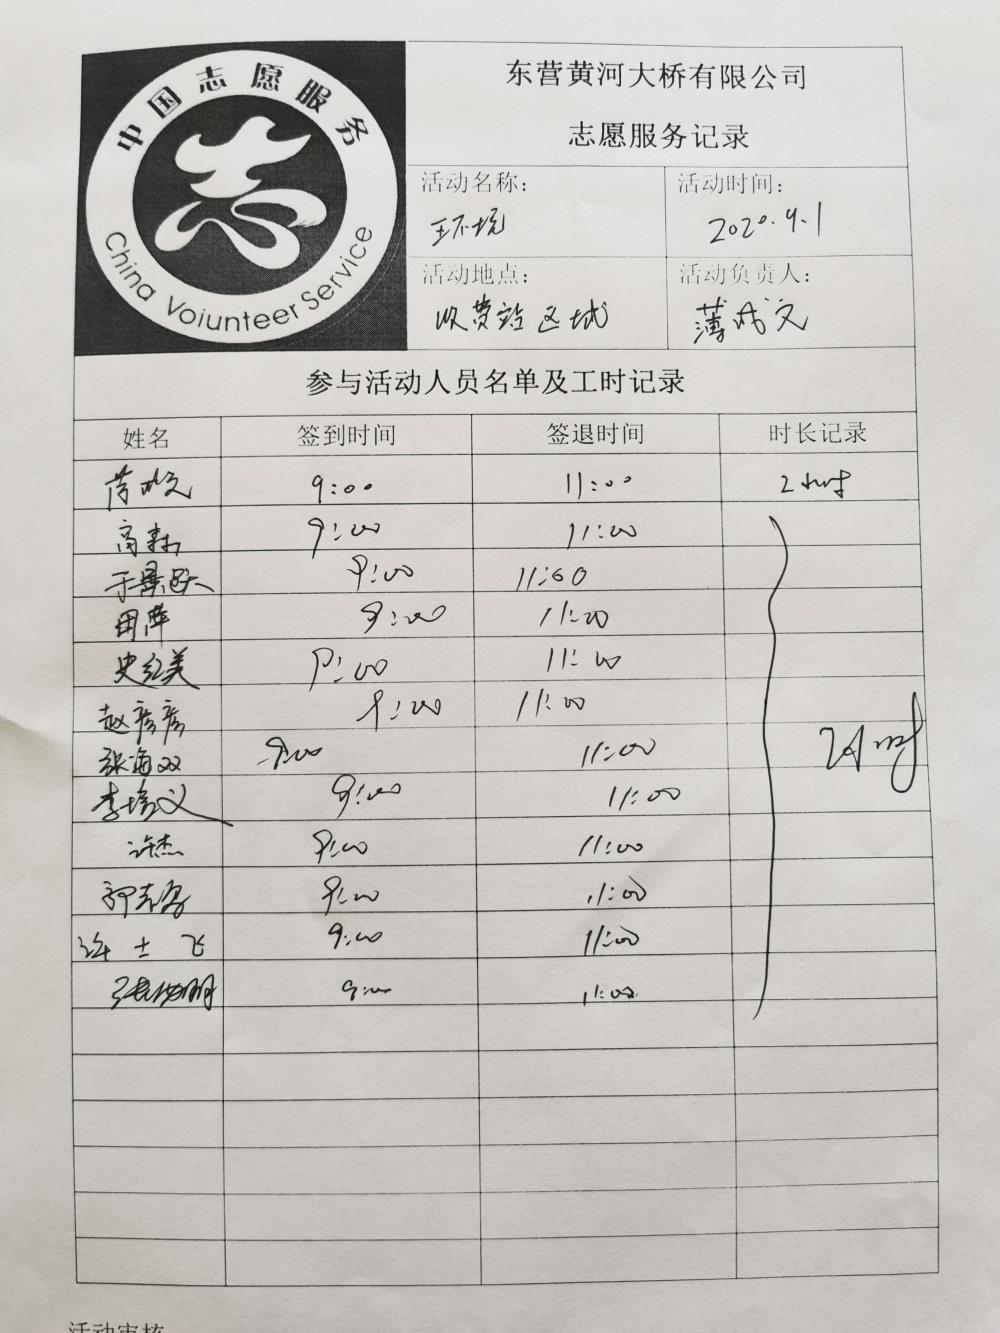 中国志愿服务
China Voiunteer Service
东营黄河大桥有限公司
志愿服务记录
活动名称： 活动时间：
环境 2020.9.1
活动地点： 活动负责人：
收费站区域 薄成文
参与活动人员名单及工时记录
姓名 签到时间 签退时间 时长记录
9:00 11:00 2小时
高森 9:00 11:00
于景跃 9:00 11:00
田萍 9:00 11:00
史红美 9:00 11:00
赵彦彦 9:00 11:00
张海双 9:00 11:00 2小时
李培义 9:00 11:00
许杰 9:00 11:00
郭志勇 9:00 11:00
许士飞 9:00 11:00
9:00 11:00
活动审核